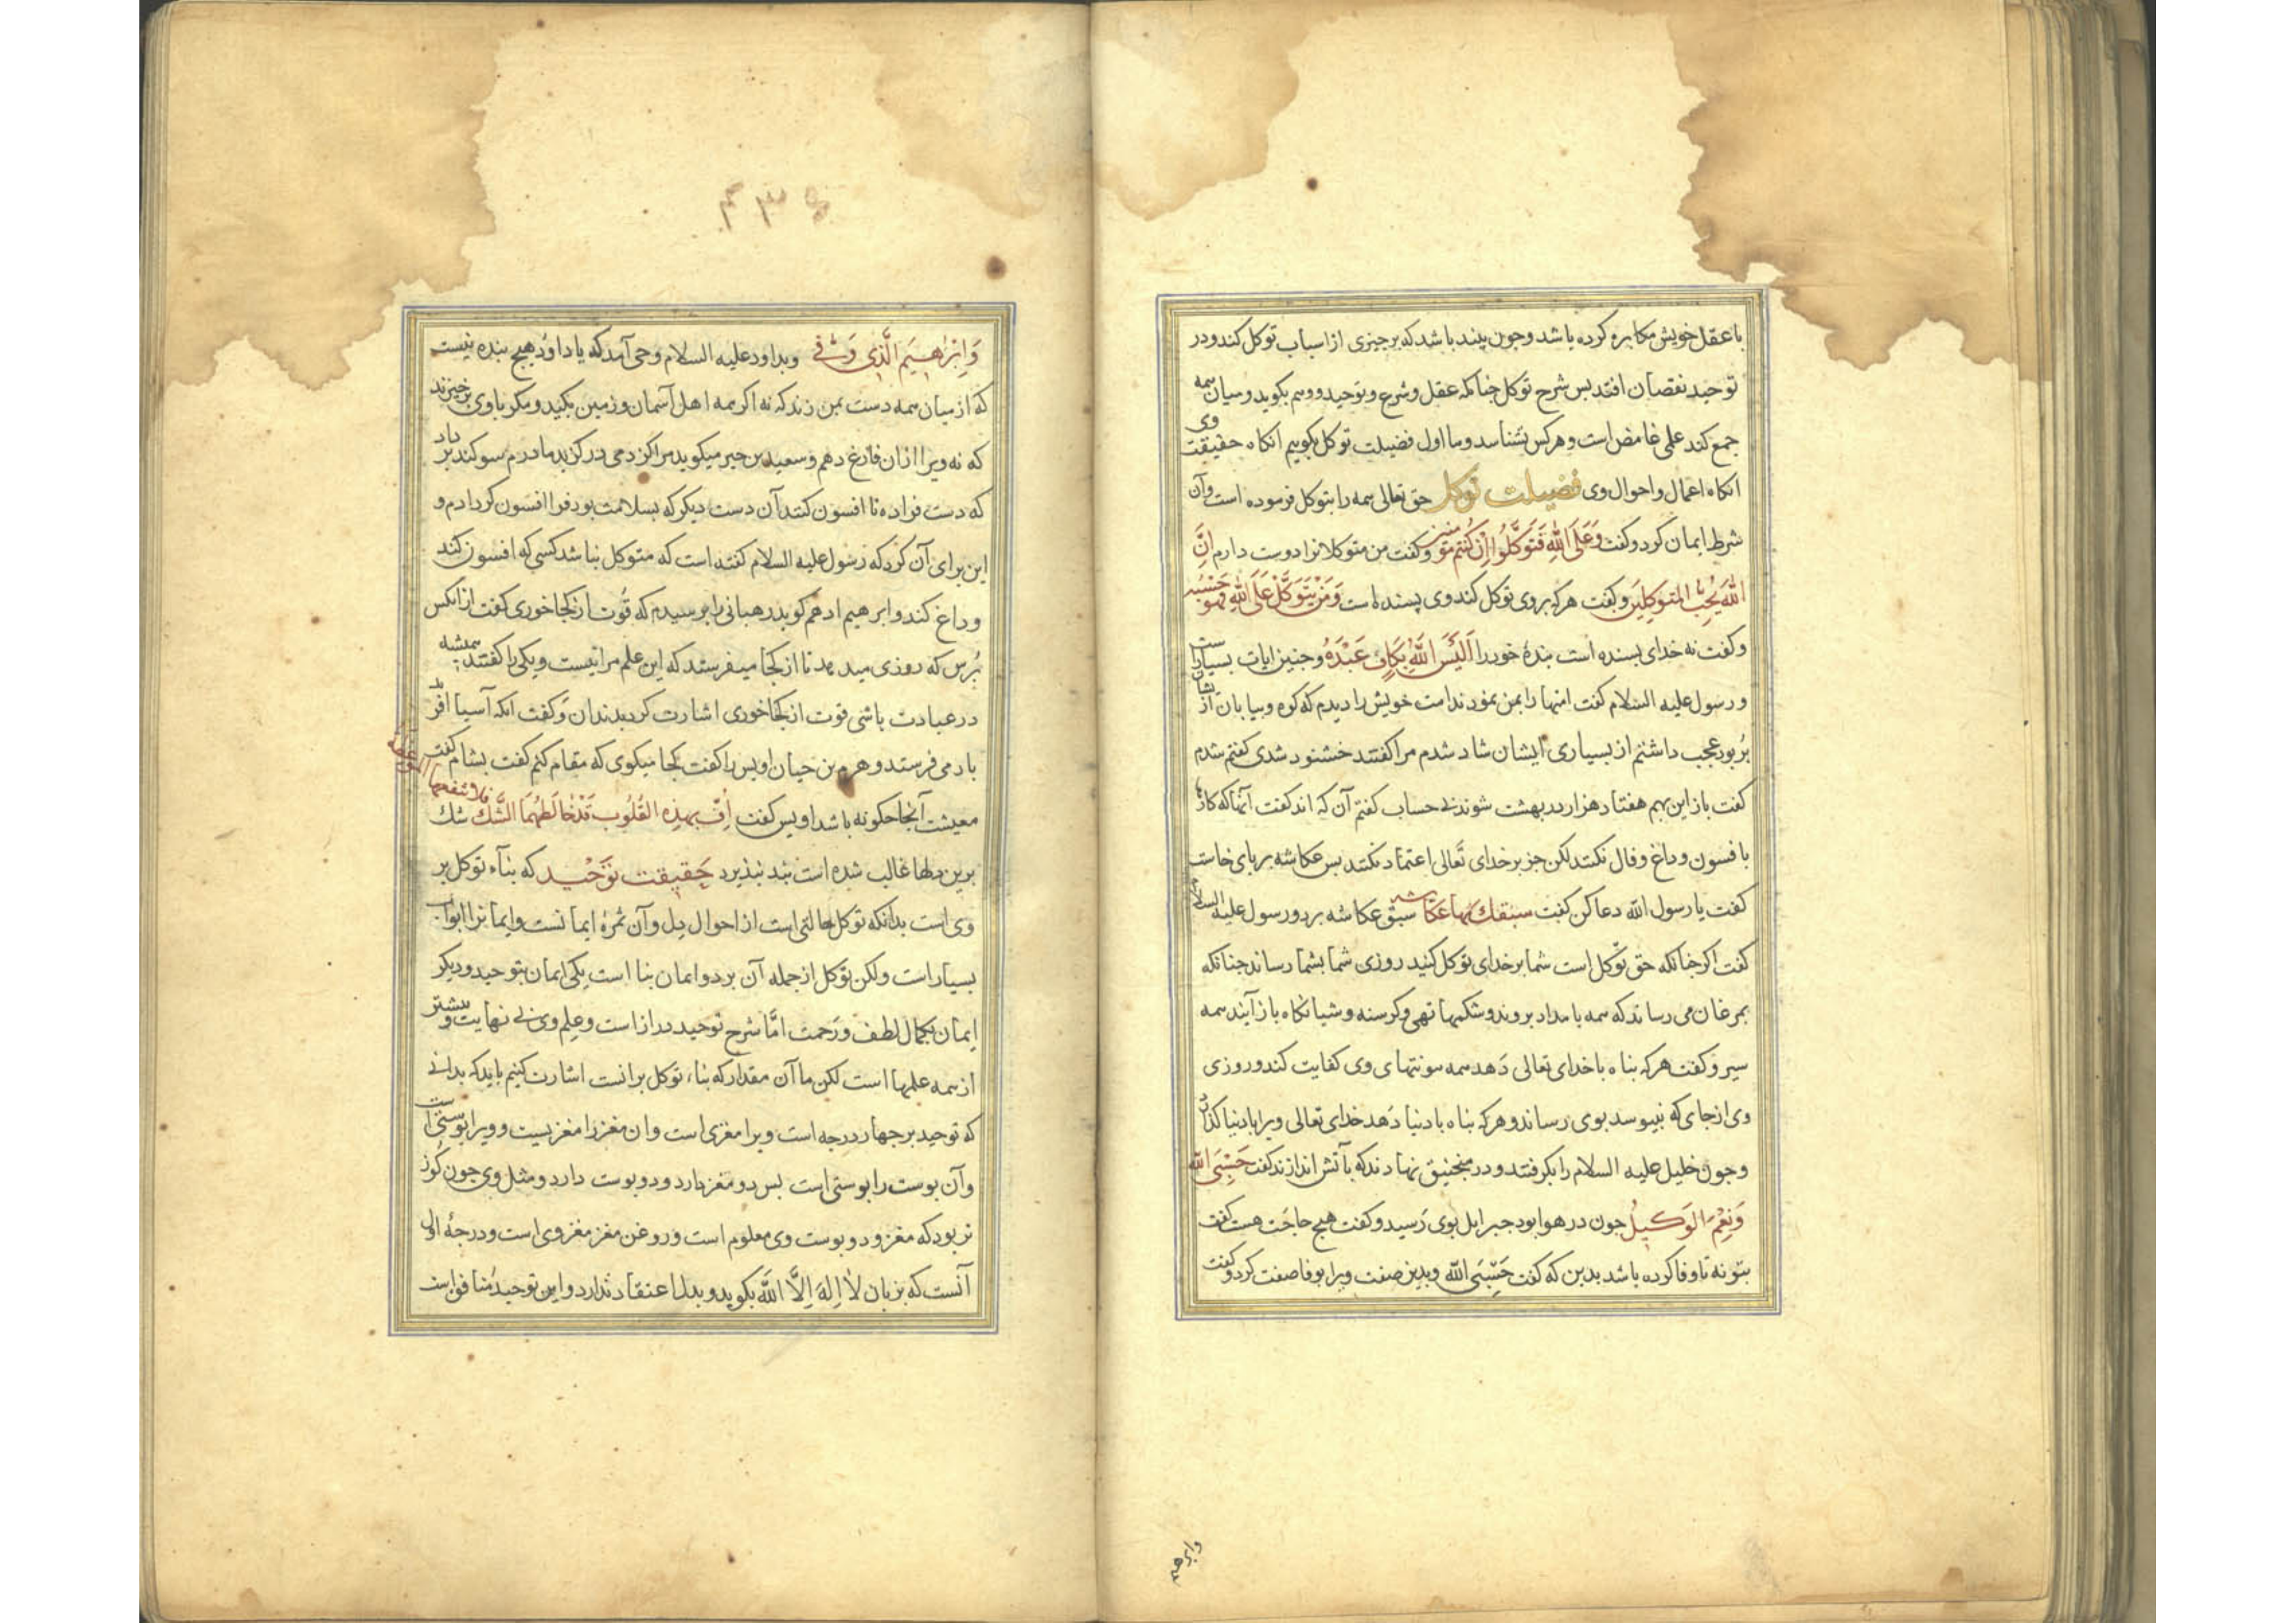 با عقل خویش مکابره کرده باشد و چون بیند باشد که بر چیزی از اسباب توکل کند و در
توحید نقصان افتد بس شرح توکل جنانکه عقل و شرع و توحید و وهم بکوید و میان همه
جمع کند علمی غامض است و هر کس نشناسد و ما اول فضیلت توکل بکوییم انکاه حقیقت وی
انکاه اعمال و احوال وی فضیلت توکل حق تعالی همه را بتوکل فرموده است و آن
شرط ایمان کرد و کفت وَعَلَی اللهِ فَتَوَکَّلُوا اِنْ کُنْتُمْ مُؤمنین و کفت من متوکلانرا دوست دارم اِنَّ
اللهَ یُحِبُّ المتوکِلِینَ و کفت هر که بر وی توکل کند وی بسنده است وَمَنْ یَتَوَکَّلْ عَلَی اللهِ فهو حَسْبُه
و کفت نه خدای بسنده است بندهٔ خود را اَلَیْسَ اللهُ بِکافٍ عَبْدَهُ و جنین ایات بسیار است
و رسول علیه السلام کفت امتها را بمن نمودند امت خویش را دیدم که کوه و بیابان از ایشان
بُر بود عجب داشتم از بسیاری ایشان شاد شدم مرا کفتند خشنود شدی کفتم شدم
کفت باز این بهم هفتاد هزار در بهشت شوند بی حساب کفتم آن که اند کفت آنها که کارها
بافسون و داغ و فال نکنند لکن جز بر خدای تَعالی اعتماد نکنند بس عکاشه بر بای خاست
کفت یا رسول الله دعا کن کفت سبقك بها عکاشه سبق عکاشه برد و رسول علیه السلام
کفت اکر جنانکه حق توکل است شما بر خدای توکل کنید روزی شما بشما رساند جنانکه
بمرغان می رساند که همه بامداد بروند و شکمها تهی و کرسنه و شبانکاه باز آیند همه
سیر و کفت هر که بناه با خدای تعالی دَهد همه مونتهای وی کفایت کند و روزی
وی از جای که نبیوسد بوی رساند و هر که بناه با دنیا دَهد خدای تعالی ویرا با دنیا کذارد
و جون خلیل علیه السلام را بکرفتند و در منجنیق نهادند که با آتش اندازند کفت حَسْبِیَ الله
وَنِعْمَ الوَکیلُ جون در هوا بود جبرایل بوی رَسید و کفت هیج حاجَت هست کفت
بتو نه تا وفا کرده باشد بدین که کفت حَسْبِیَ الله و بدین صفت ویرا بوفا صفت کرد و کفت
وابرهیم
وَاِبْرٰهیمَ الَّذِی وَفّی و بداود علیه السلام وحی آمد که یا داوُد هیج بنده نیست
که از میان همه دست بمن زند که نه اکر همه اهل آسمان و زمین بکید و مکر با وی برخیزند
که نه ویرا ازان فارغ دهم و سعید بن جبر میکوید مرا کژدمی در کزید مادرم سوکند بر داد
که دست فراده تا افسون کنند آن دست دیکر که بسلامت بود فرا افسون کر دادم و
این برای آن کرد که رَسُول علیه السلام کفته است که متوکل نباشد کسی که افسون کند
و داغ کند و ابرهیم ادهم کوید رهبانی را برسیدم که قُوت از کجا خوری کفت از انکس
بُرس که روزی میدهد تا از کجا میفرستد که این علم مرا نیست و یکی را کفتند همیشه
در عبادت باشی قوت از کجا خوری اشارت کرد بدندان وَ کفت انکه آسیا افرید
بار می فرستد و هرم بن حیان اویس را کفت کجا میکوی که مقام کنم کفت بشام کفت
معیشت آنجا جکونه باشد اویس کفت اُفٍّ بهذِهِ القُلُوب قَدْخالَطَهُمَا الشَّكُ فلا تنفعها الموعظة شك
برین دلها غالب شده است بند نبذیرد حَقیقت تَوْحْید که بنآء توکل بر
وی است بدانکه توکل حالتی است از احوال دِل و آن ثمرهٔ ایمانست و ایمانرا ابواب
بسیار است و لکن توکل از جمله آن بر دو ایمان بنا است یکی ایمان بتوحید و دیکر
ایمان بکمال لطف و رَحمت امَّا شرح توحید دراز است و علم وی بی نهایت و بیشتر
از همه علمها است لکن ما آن مقدار که بناء توکل برانست اشارت کنیم باید که بدانی
که توحید بر جهار درجه است و یرا مغزی است و ان مغز را مغزیست و ویرا بوستی است
و آن بوست را بوستی است بس دو مغز دارد و دو بوست دارد و مثل وی جون کَوز
تر بود که مغز و دو بوست وی معلوم است و روغن مغز مغز وی است و درجهٔ اولی
آنست که بزبان لا اِلهَ اِلاَّ اللهَ بکوید و بدل اعتقاد ندارد و این توحید مُنافق است